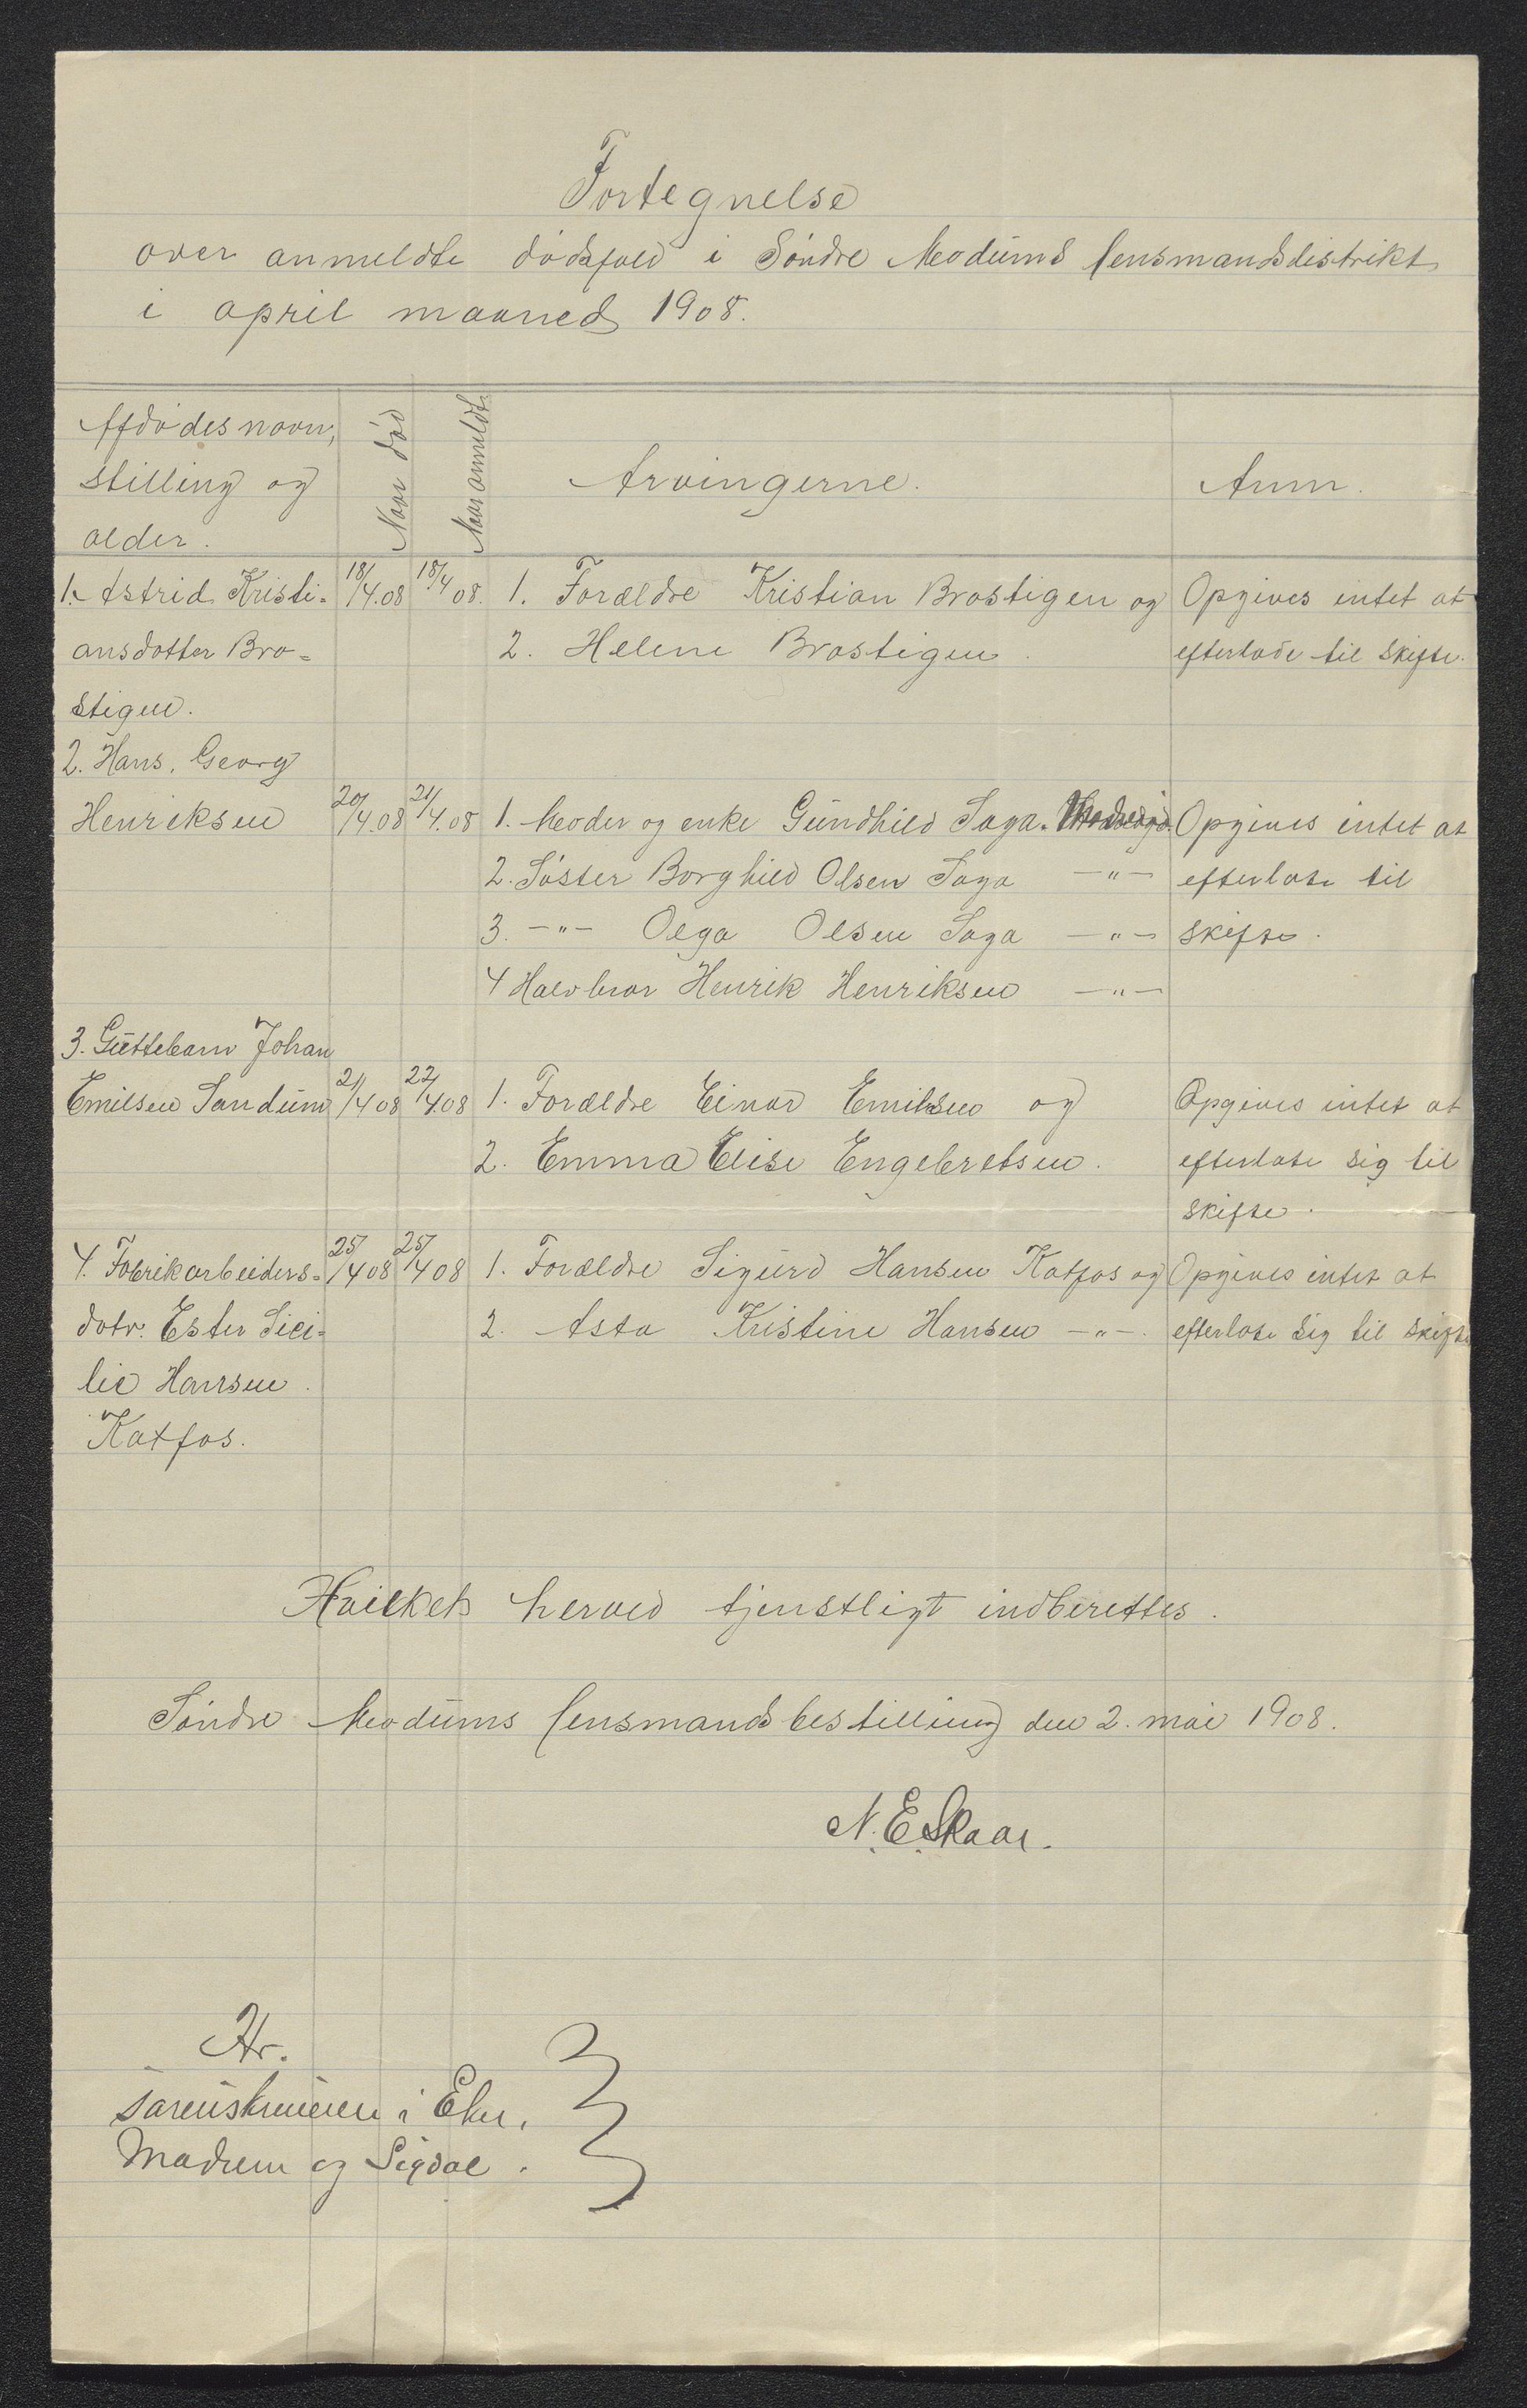 Fortegnelse
over anmeldte dødsfald i Søndre Modums lensmandsdistrikt
i april maaned 1908.
Afdødes navn,
stilling og
alder.
Naar død
Naar anmeldt.
Arvingerne.
Anm.
1. Astrid Kristi- 18/4.08 18/4 08. 1. Forældre Kristian Brastigen og Opgives intet at
ansdatter Bra- 2. Helene Brastigen. efterlade til skifte.
stigen.
2. Hans, Georg
Henriksen 20/4.08 21/4.08 1. Moder og enke Gundhild Saga. Opgives intet at
2. Søster Borghild Olsen Saga —"— efterlate til
3. —"— Olga Olsen Saga —"— skifte.
4 Halvbror Henrik Henriksen —"—
3. Guttebarn Johan
Emilsen Sandum 21/4 08 22/4.08 1. Forældre Einar Emilsen og Opgives intet at
2. Emma Elise Engebretsen. efterlate sig til
skifte.
4. Fabrikarbeiders- 25/4 08 25/4 08 1. Forældre Sigurd Hansen Katfos og Opgives intet at
datr. Ester Sici- 2. Asta Kristine Hansen —"—. efterlate sig til skifte
lie Hansen.
Katfos.
Hvilket herved tjenstligt indberettes.
Søndre Modums lensmandsbestilling den 2. mai 1908.
N. E. Skaar.
Hr.
sorenskriveren i Eker,
Modum og Sigdal.